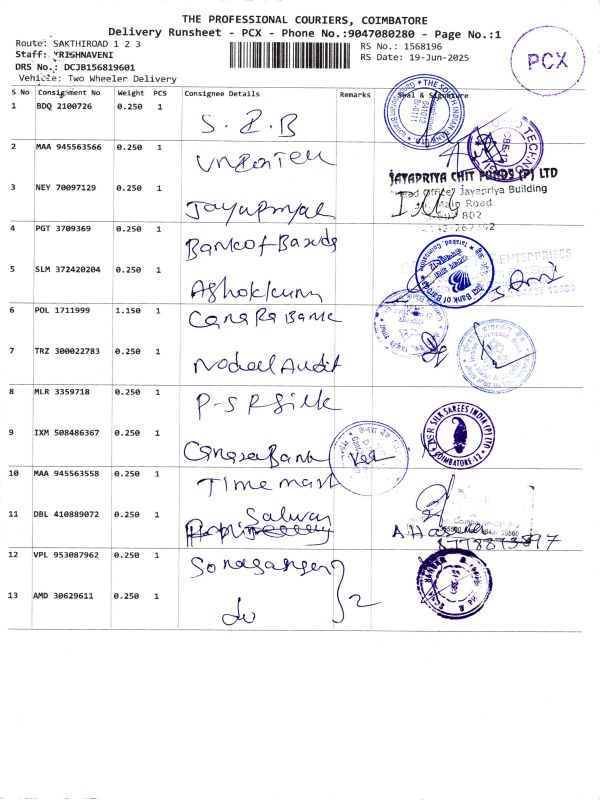 THE PROFESSIONAL COURIERS, COIMBATORE
Delivery Runsheet - PCX - Phone No.:9047080280 - Page No.:1
Route: SAKTHIROAD 1 2 3
Staff: KRISHNAVENI
DRS No.: DCJB156819601
Vehicle: Two Wheeler Delivery
RS No.: 1568196
RS Date: 19-Jun-2025
PCX
S No Consignment No Weight PCS Consignee Details Remarks Seal & Signature
1 BDQ 2100726 0.250 1 S.I.B
2 MAA 945563566 0.250 1
3 NEY 70097129 0.250 1 Jayapriya
JAYAPRIYA CHIT FUNDS (P) LTD
Head Office, Jayapriya Building
Main Road
4 PGT 3709369 0.250 1 Bank of Baroda
5 SLM 372420204 0.250 1 Ashokkumar
ENTERPRISES
6 POL 1711999 1.150 1 Canara Bank
7 TRZ 300022783 0.250 1 Nodeel Audit
8 MLR 3359718 0.250 1 P-S R Silk
PSR SILK SAREES INDIA (P) LTD
COIMBATORE-12
9 IXM 508486367 0.250 1 Canara Bank
10 MAA 945563558 0.250 1 Time mart
11 DBL 410889072 0.250 1
12 VPL 953087962 0.250 1
13 AMD 30629611 0.250 1 do 2